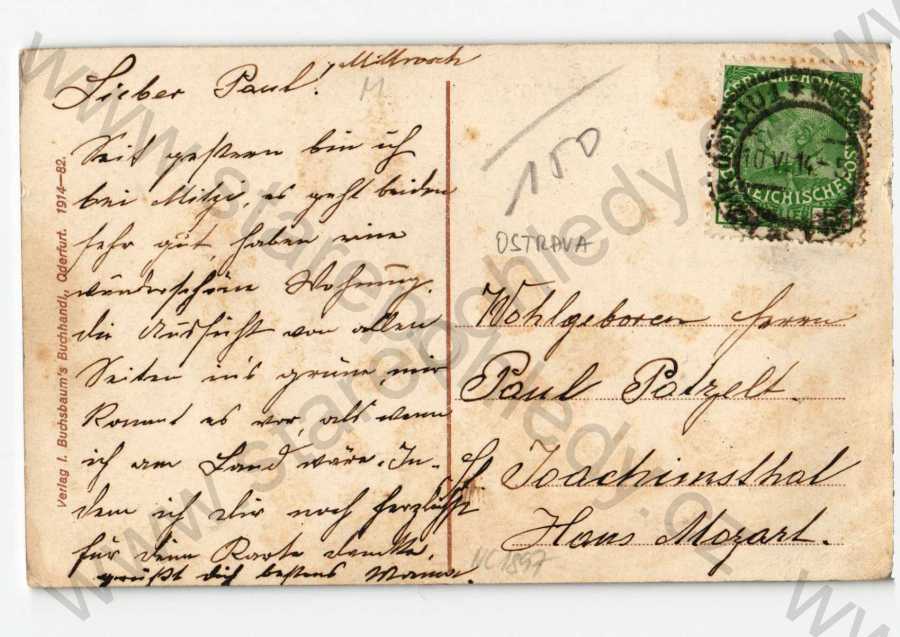 Mittwoch
Lieber Paul!
M
Seit gestern bin ich
bei Mitze, es geht beiden
sehr gut, haben eine
wunderschöne Wohnung.
die Aussicht von allen
Seiten in's grüne, mir
kommt es vor, als wenn
ich am Land wäre. In-
dem ich Dir noch herzlichst
für deine Karte danke,
grüßt dich bestens
Verlag I. Buchsbaum's Buchhandl., Oderfurt. 1914-82.
150
OSTRAVA
10 VI 14
REICHISCHE
Wohlgeboren Herrn
Paul Patzelt.
Joachimsthal
Haus Mozart.
www.starepohledy.cz
www.starepohledy.cz